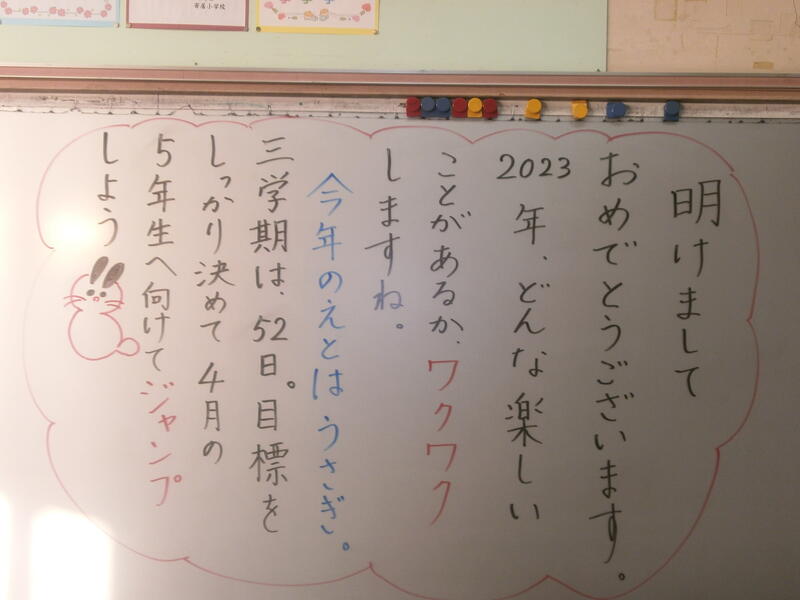 寄居小学校
明けまして
おめでとうございます。
2023年、どんな楽しい
ことがあるか、ワクワク
しますね。
今年のえとはうさぎ。
三学期は、52日。目標を
しっかり決めて4月の
5年生へ向けてジャンプ
しよう